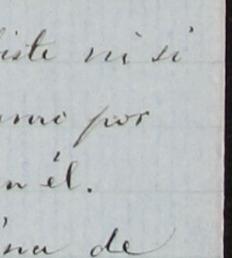 iste ni si
umo por
n él.
ina de